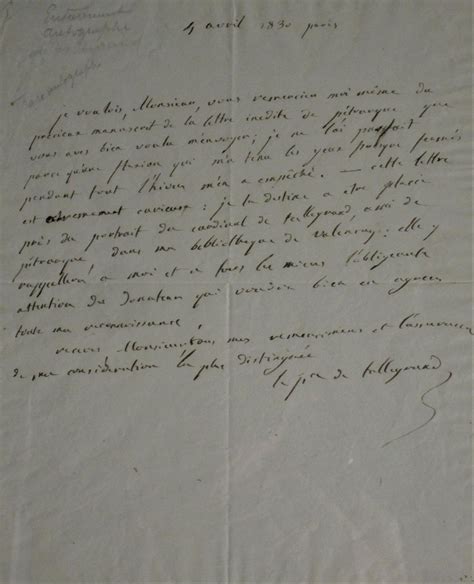 Entièrement
autographe
rare autographe
4 avril 1830 paris
je voulois, Monsieur, vous remercier moi même du
précieux manuscrit de la lettre inédite de pétrarque que
vous avez bien voulu m'envoyer; je ne l'ai pas fait
parce qu'une fluxion qui m'a tenu les yeux presque fermés
pendant tout l'hiver m'en a empêché — cette lettre
est extrêmement curieuse: je la destine a etre placée
près du portrait du cardinal de talleyrand, ami de
pétrarque dans ma bibliothèque de valencay: elle y
rappellera a moi et a tous les miens l'obligeante
attention du Donateur qui voudra bien en agréer
toute ma reconnaissance
recevez Monsieur tous mes remerciemens et l'assurance
de ma considération la plus distinguée
le pce de talleyrand